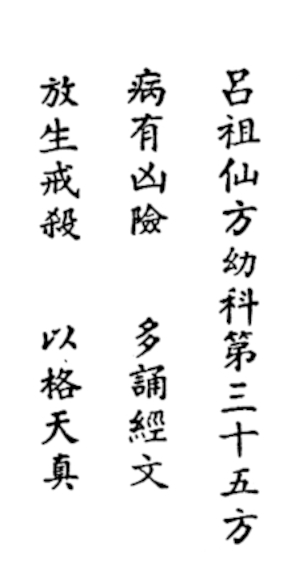 呂祖仙方幼科第三十五方
病有凶險　多誦經文
放生戒殺　以格天真